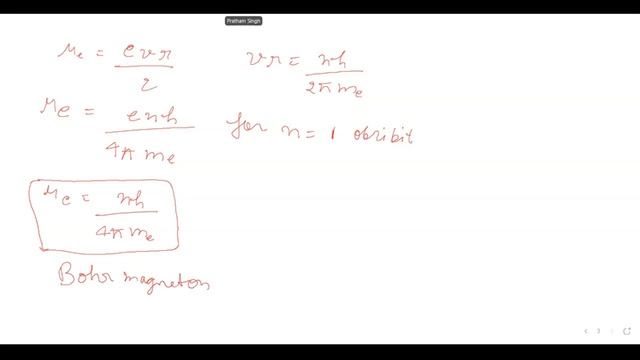 Pratham Singh
μe = evr/2 vr = nh/2πme
μe = enh/4πme for n = 1 obribit
μe = nh/4πme
Bohr magneton